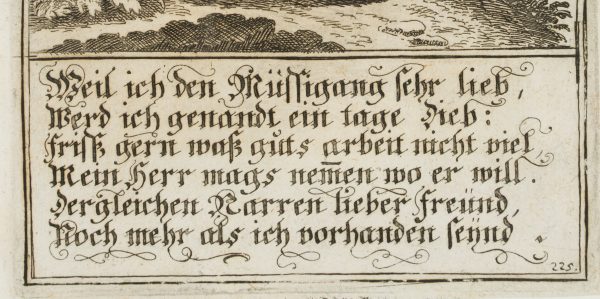 Weil ich den Müssigang sehr lieb,
Werd ich genandt ein tage Dieb:
Frisß gern waß guts arbeit nicht viel,
Mein Herr mags nem̄en wo er will.
Dergleichen Narren lieber Freünd,
Noch mehr als ich vorhanden seÿnd.
225.